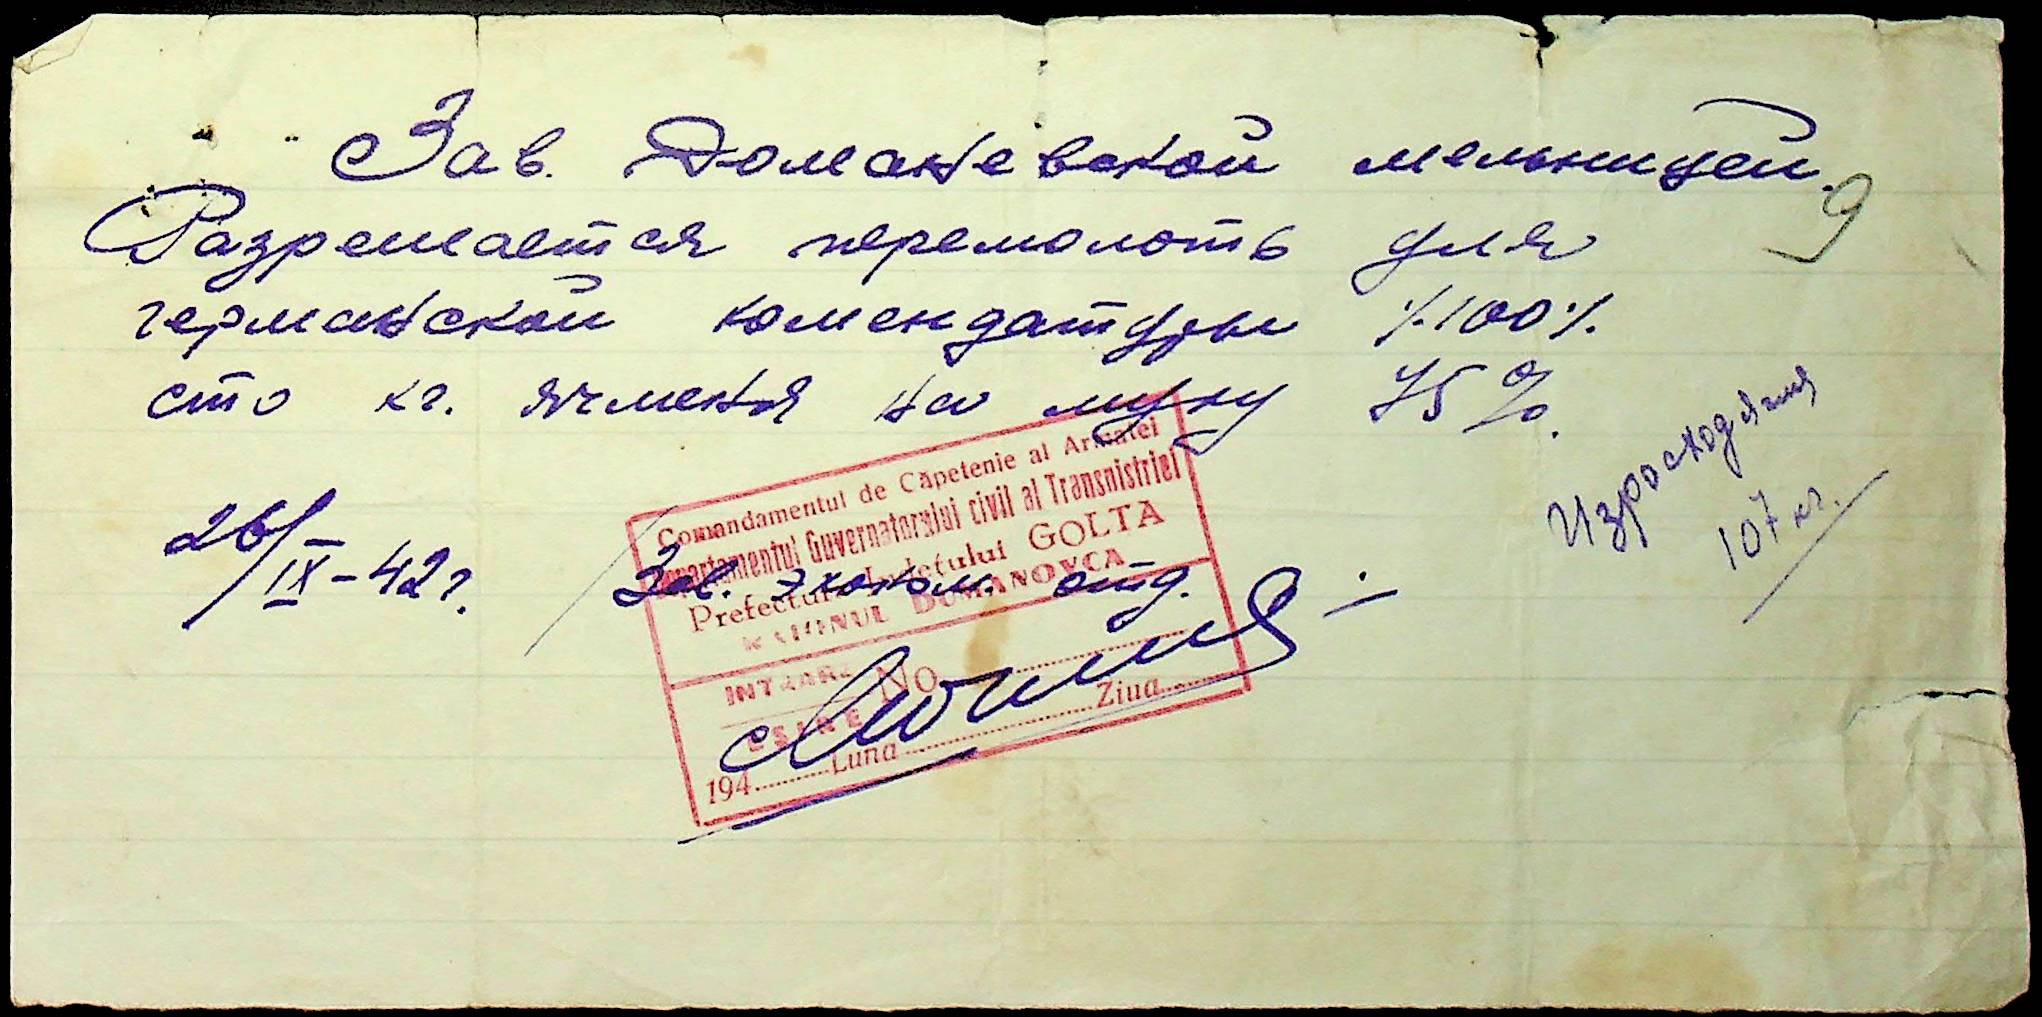 Зав. Доманевской мельницей.
9
Разрешается перемолоть для
германской комендатуры /.100./.
сто кг. ячменя на муку 75%.
Израсходят
107 кг.
26/IX-42 г.
Зав. эконом. отд.
Comandamentul de Căpetenie al Armatei
Departamentul Guvernatorului civil al Transnistriei
Prefectura Judeţului GOLTA
RAIONUL DOMANOVCA
INTRARE No
ESIRE
194 Luna Ziua